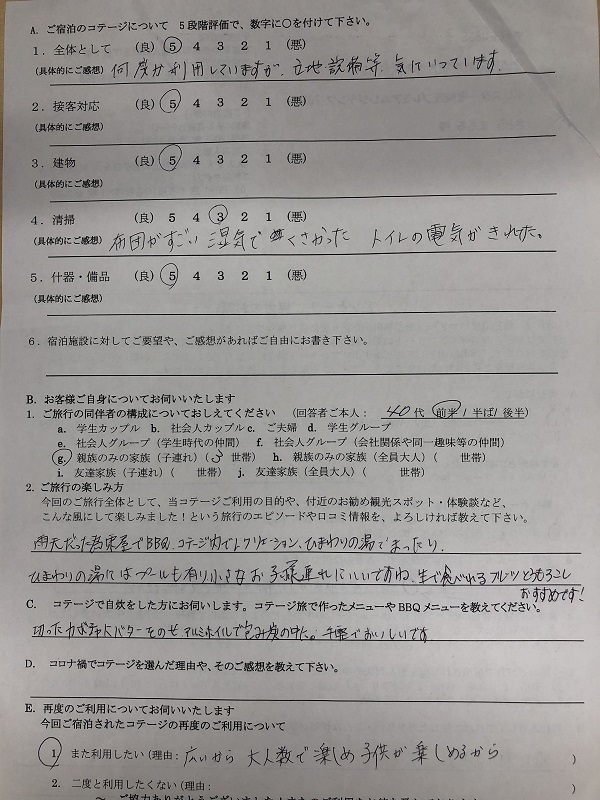 A. ご宿泊のコテージについて 5段階評価で、数字に○を付けて下さい。
1. 全体として (良) 5 4 3 2 1 (悪)
(具体的にご感想) 何度か利用していますが、立地、設備等、気にいっています。
2. 接客対応 (良) 5 4 3 2 1 (悪)
(具体的にご感想)
3. 建物 (良) 5 4 3 2 1 (悪)
(具体的にご感想)
4. 清掃 (良) 5 4 3 2 1 (悪)
(具体的にご感想) 布団がすごい湿気でくさかった トイレの電気がきれた。
5. 什器・備品 (良) 5 4 3 2 1 (悪)
(具体的にご感想)
6. 宿泊施設に対してご要望や、ご感想があればご自由にお書き下さい。
B. お客様ご自身についてお伺いいたします
1. ご旅行の同伴者の構成についておしえてください (回答者ご本人: 40代 前半 / 半ば / 後半)
a. 学生カップル b. 社会人カップル c. ご夫婦 d. 学生グループ
e. 社会人グループ(学生時代の仲間) f. 社会人グループ(会社関係や同一趣味等の仲間)
g. 親族のみの家族(子連れ)(3 世帯) h. 親族のみの家族(全員大人)( 世帯)
i. 友達家族(子連れ)( 世帯) j. 友達家族(全員大人)( 世帯)
2. ご旅行の楽しみ方
今回のご旅行全体として、当コテージご利用の目的や、付近のお勧め観光スポット・体験談など、
こんな風にして楽しみました！という旅行のエピソードや口コミ情報を、よろしければ教えて下さい。
雨天だった為東屋でBBQ、コテージ内でレクリエーション、ひまわりの湯でまったり。
ひまわりの湯にはプールも有り小さなお子様連れにいいですね。生で食べれるフルーツとうもろこし
おすすめです！
C. コテージで自炊をした方にお伺いします。コテージ旅で作ったメニューやBBQメニューを教えてください。
切ったカボチャにバターをのせアルミホイルで包み炭の中に。手軽でおいしいです
D. コロナ禍でコテージを選んだ理由や、そのご感想を教えて下さい。
E. 再度のご利用についてお伺いいたします
今回ご宿泊されたコテージの再度のご利用について
1. また利用したい(理由: 広いから 大人数で楽しめ子供が楽しめるから )
2. 二度と利用したくない(理由: )